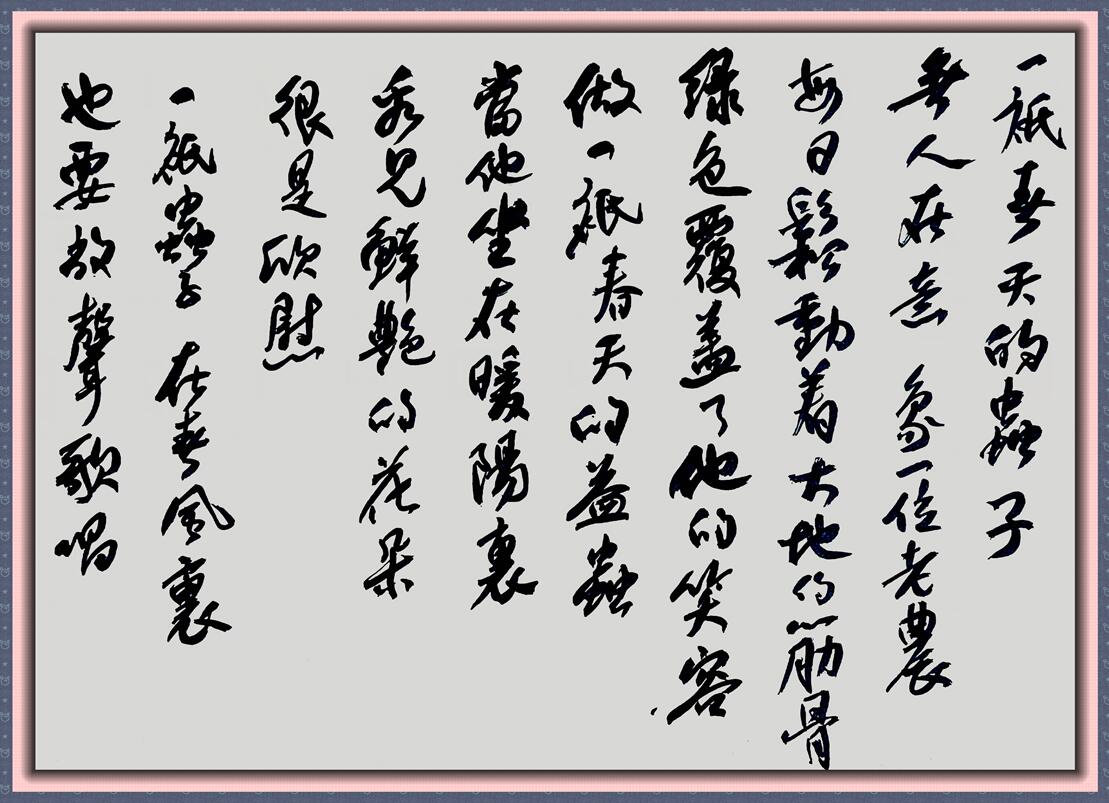 一衹春天的蟲子
無人在意 象一位老農
每日鬆動着大地的筋骨
綠色覆蓋了他的笑容
做一衹春天的益蟲
當他坐在暖陽裏
看見鮮艷的花朵
很是欣慰
一衹蟲子 在春風裏
也要放聲歌唱